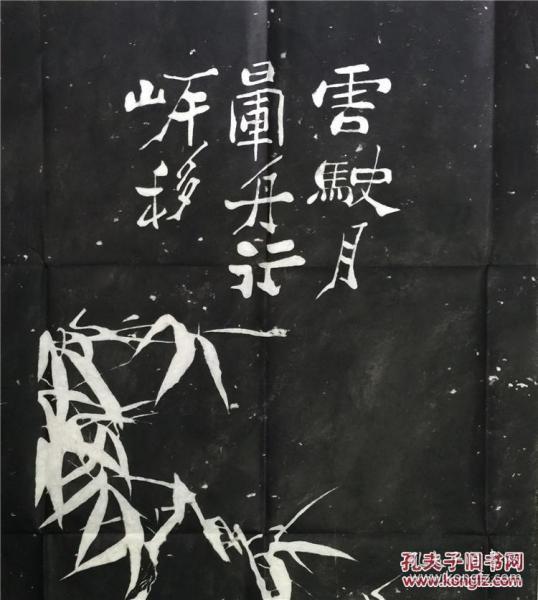 雲駛月
暈舟行
岸移
孔夫子旧书网
www.kongfz.com